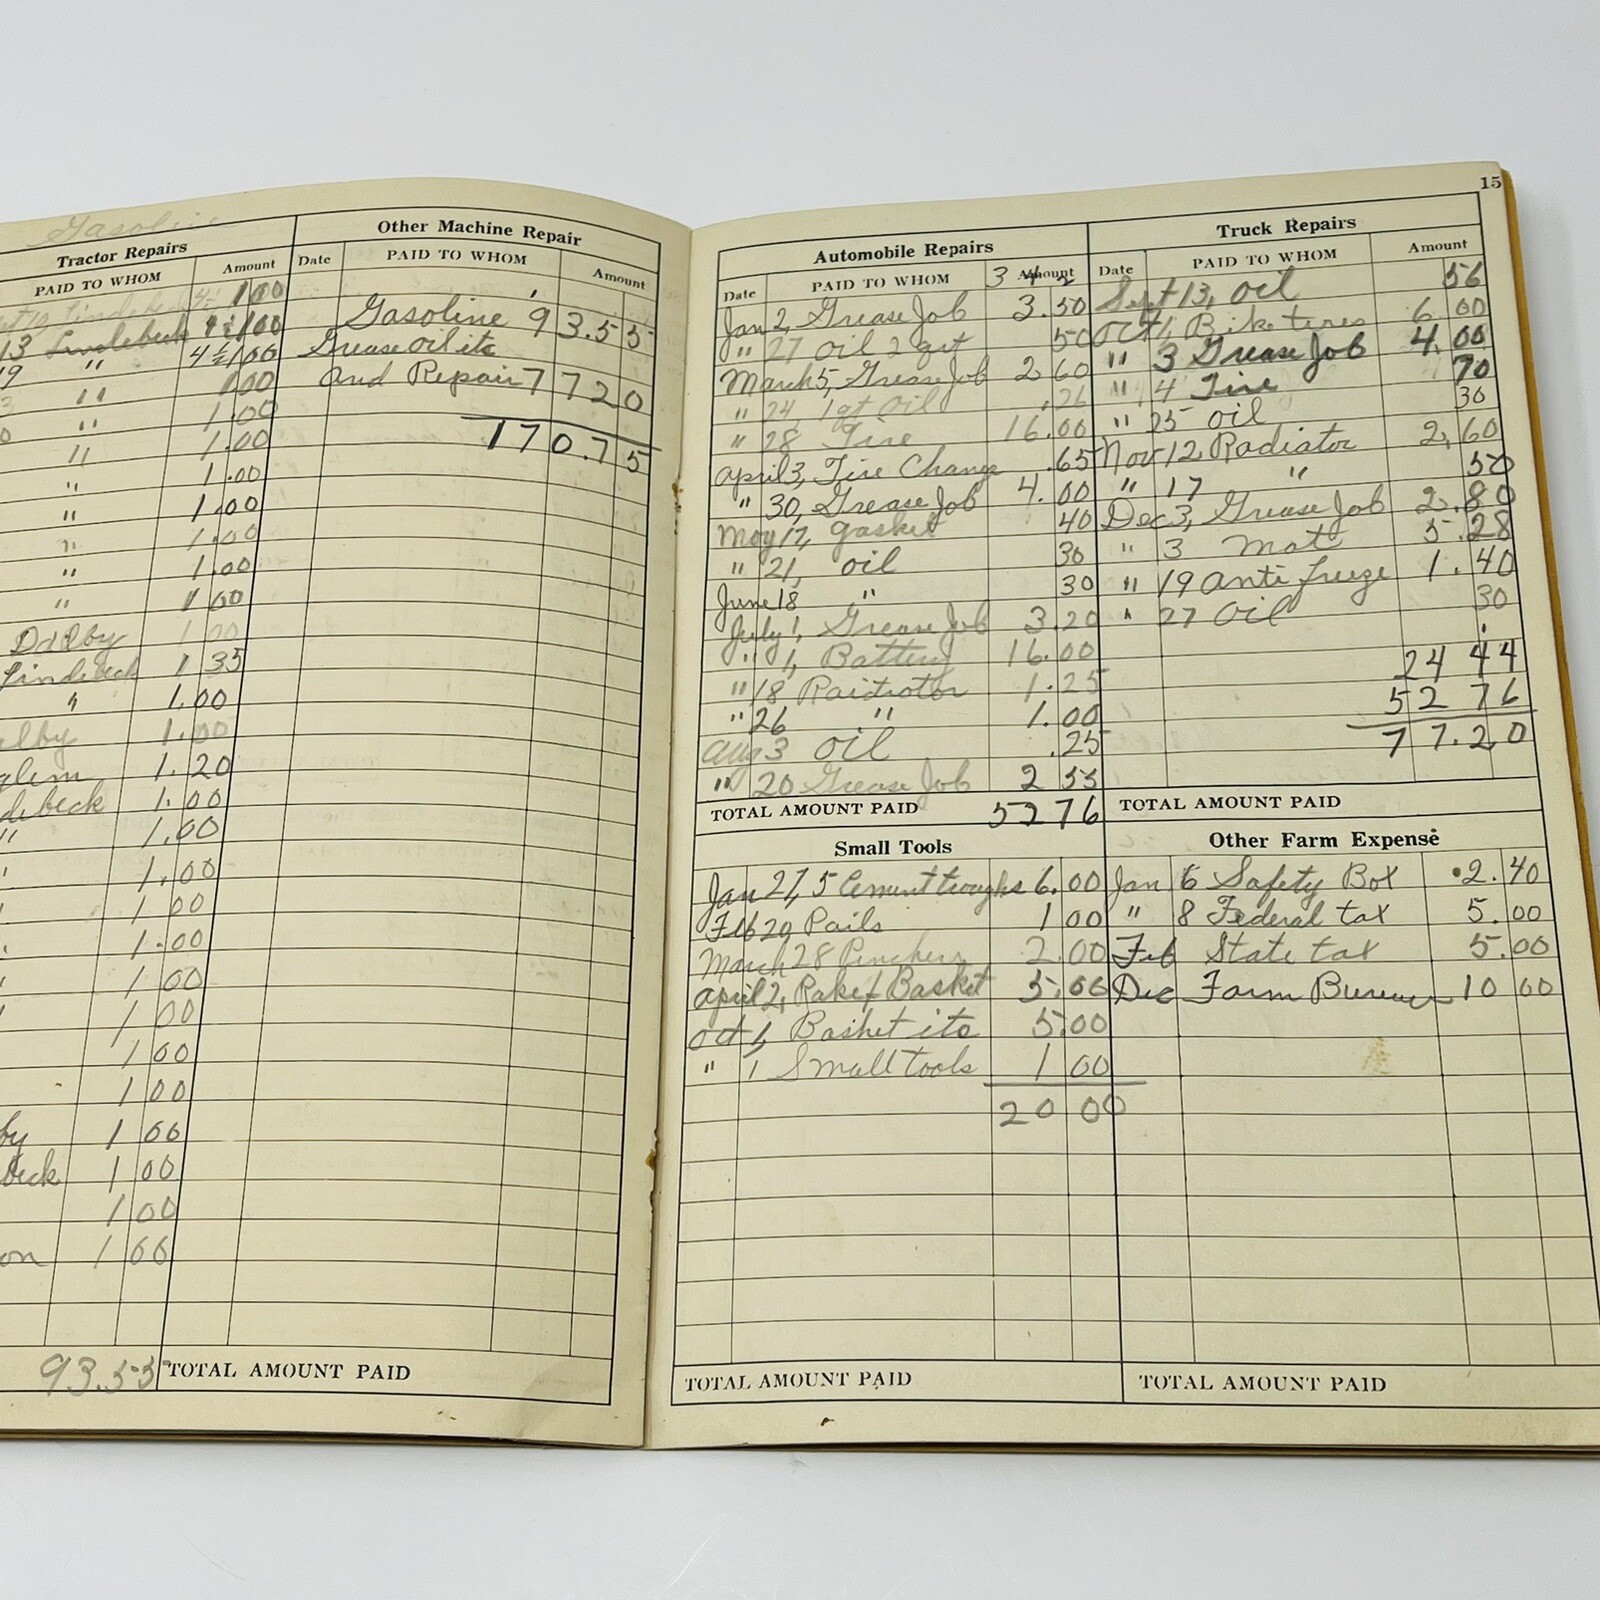 Gasoline
Tractor Repairs
PAID TO WHOM Amount
1 00
13 Lindebeck 4½ 1 00
19 " 4½ 1.00
" 1 00
" 1.00
" 1.00
" 1.00
" 1.00
" 1.00
" 1.00
" 1 00
Dalby 1 00
Lindebeck 1 35
" 1.00
alby 1.00
glem 1.20
debeck 1.00
" 1.00
" 1.00
" 1 00
" 1.00
" 1 00
" 1 00
1 00
1 00
by 1 00
beck 1 00
1 00
on 1 00
93.55
Other Machine Repair
Date PAID TO WHOM Amount
Gasoline 93.55
Grease oil itc
and Repair 77 20
170.75
TOTAL AMOUNT PAID
15
Automobile Repairs
Date PAID TO WHOM Amount
Jan 2, Grease Job 3.50
" 27 oil 2 qrt 50
March 5, Grease Job 2 60
" 24 1 qt oil .26
" 28 Tire 16.00
April 3, Tire Change .65
" 30, Grease Job 4.00
May 17, gasket 40
" 21, oil 30
June 18 " 30
July 1, Grease Job 3.20
" 1, Battery 16.00
" 18 Raidiator 1.25
" 26 " 1.00
Aug 3 oil .25
" 20 Grease Job 2 55
TOTAL AMOUNT PAID 52 76
Truck Repairs
Date PAID TO WHOM Amount
Sept 13, oil 56
Oct 1, Bike tires 6.00
" 3 Grease Job 4.00
" 4 Tire 70
" 25 oil 30
Nov 12, Radiator 2,60
" 17 " 50
Dec 3, Grease Job 2.80
" 3 Mat 5.28
" 19 anti freeze 1.40
" 27 oil 30
24 44
52 76
77.20
TOTAL AMOUNT PAID
Small Tools
Jan 27, 5 Cement troughs 6.00
Feb 29 Pails 1 00
March 28 Pinchers 2.00
April 2, Rake & Basket 5.00
Oct 1, Basket itc 5.00
" 1 Small tools 1 00
20 00
TOTAL AMOUNT PAID
Other Farm Expense
Jan 6 Safety Box 2.40
" 8 Federal tax 5.00
Feb State tax 5.00
Dec Farm Bureau 10 00
TOTAL AMOUNT PAID